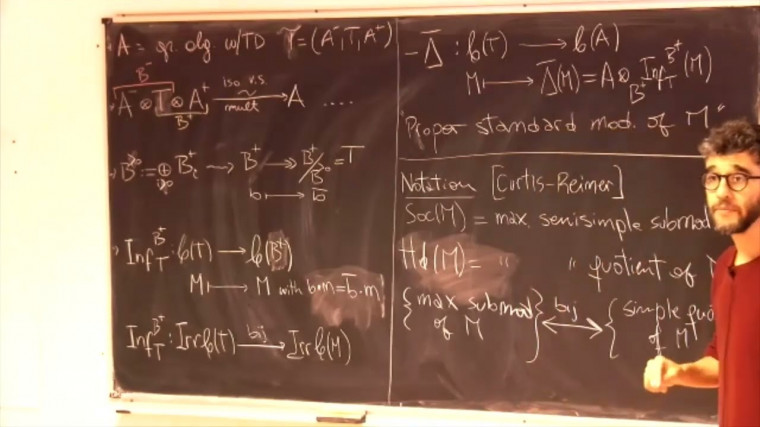 A = gr. alg. w/TD T = (A⁻, T, A⁺)
B⁻
A⁻ ⊗ T ⊗ A⁺ iso v.s. ⟶ mult A ....
B⁺
B^{>0} := ⊕_{i>0} B_i^+ ⤳ B⁺ ⟶ B⁺/B^{>0} = T
b ⟼ b̄
Inf_T^{B⁺} : 𝒢(T) ⟶ 𝒢(B⁺)
M ⟼ M with b·m = b̄·m
Inf_T^{B⁺} : Irr 𝒢(T) bij ⟶ Irr 𝒢(M)
- Δ̄ : 𝒢(T) ⟶ 𝒢(A)
M ⟼ Δ̄(M) = A ⊗_{B⁺} Inf_T^{B⁺}(M)
"Proper standard mod. of M"
Notation [Curtis-Reiner]
Soc(M) = max. semisimple submod
Hd(M) = " " quotient of
{max submod of M} bij ⟷ {simple quo of M